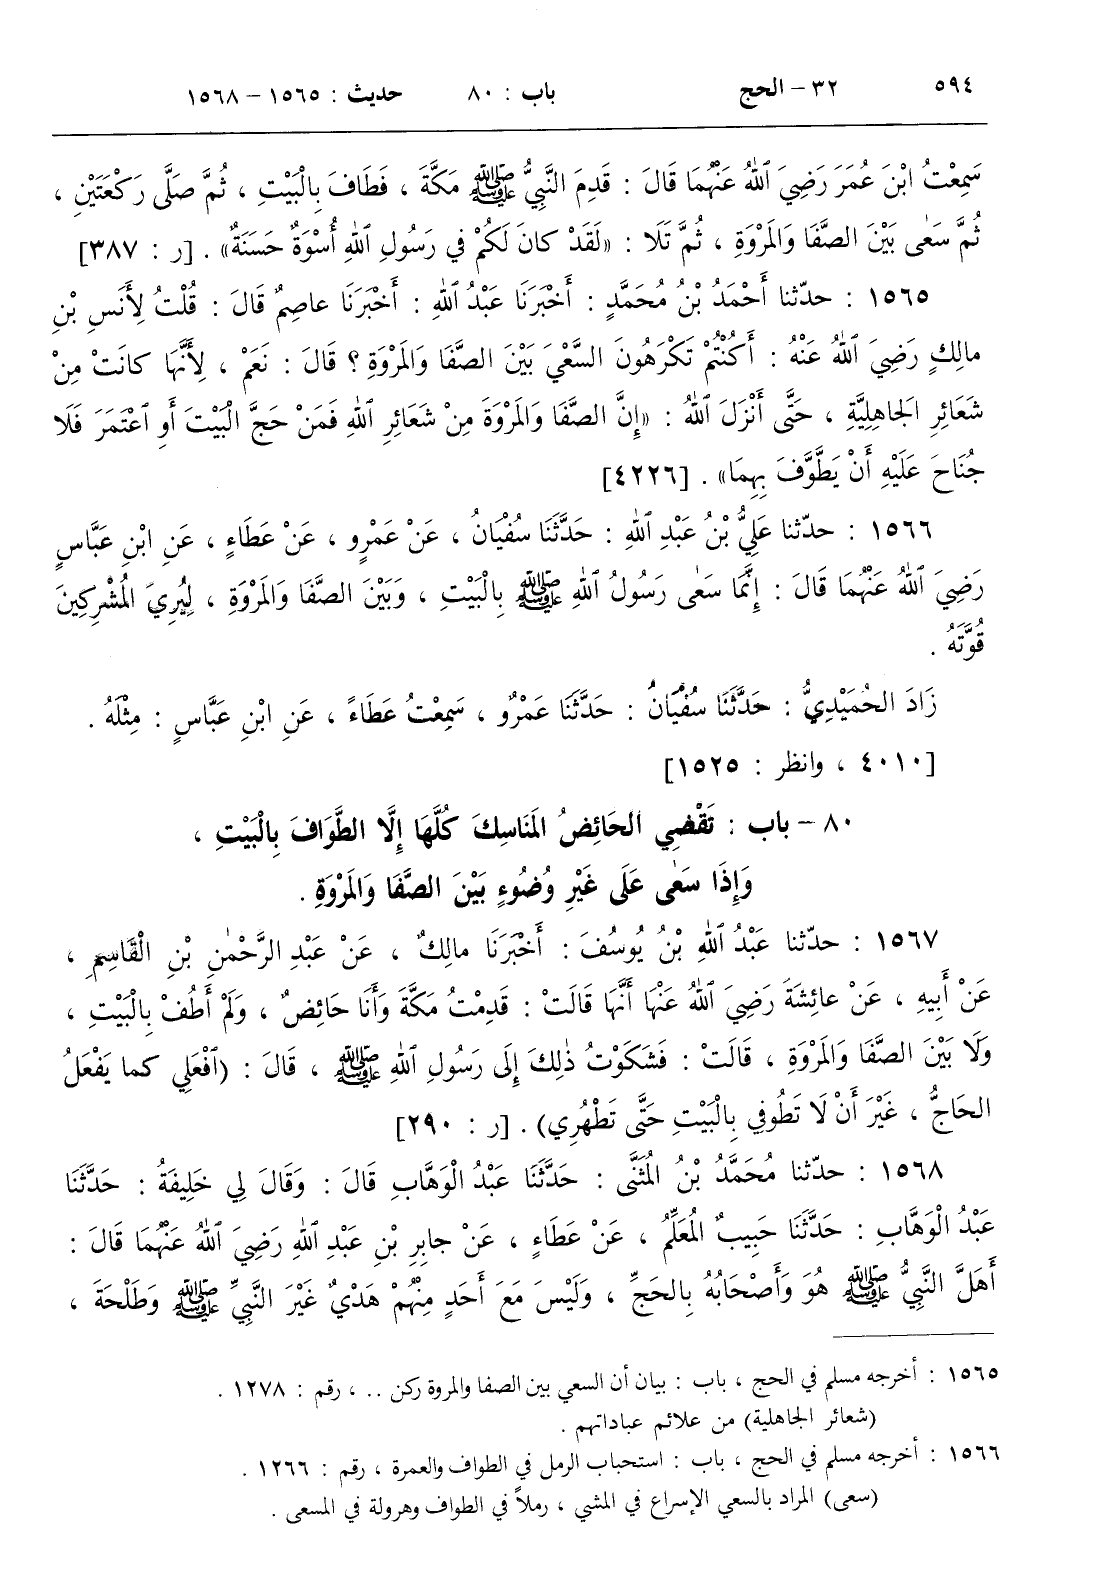 ٥٩٤ ٣٢ – الحج باب : ٨٠ حديث : ١٥٦٥ – ١٥٦٨
سَمِعْتُ ابْنَ عُمَرَ رَضِيَ ٱللهُ عَنْهُمَا قَالَ : قَدِمَ النَّبِيُّ ﷺ مَكَّةَ ، فَطَافَ بِالْبَيْتِ ، ثُمَّ صَلَّى رَكْعَتَيْنِ ،
ثُمَّ سَعٰى بَيْنَ الصَّفَا وَالمَرْوَةِ ، ثُمَّ تَلَا : «لَقَدْ كانَ لَكُمْ في رَسُولِ ٱللهِ أُسْوَةٌ حَسَنَةٌ» . [ر : ٣٨٧]
١٥٦٥ : حدّثنا أَحْمَدُ بْنُ مُحَمَّدٍ : أَخْبَرَنَا عَبْدُ ٱللهِ : أَخْبَرَنَا عاصِمٌ قَالَ : قُلْتُ لِأَنَسِ بْنِ
مالِكٍ رَضِيَ ٱللهُ عَنْهُ : أَكُنْتُمْ تَكْرَهُونَ السَّعْيَ بَيْنَ الصَّفَا وَالمَرْوَةِ ؟ قَالَ : نَعَمْ ، لِأَنَّهَا كانَتْ مِنْ
شَعَائِرِ الجَاهِلِيَّةِ ، حَتَّى أَنْزَلَ ٱللهُ : «إِنَّ الصَّفَا وَالمَرْوَةَ مِنْ شَعَائِرِ ٱللهِ فَمَنْ حَجَّ الْبَيْتَ أَوِ ٱعْتَمَرَ فَلَا
جُنَاحَ عَلَيْهِ أَنْ يَطَّوَّفَ بِهِمَا» . [٤٢٢٦]
١٥٦٦ : حدّثنا عَلِيُّ بْنُ عَبْدِ ٱللهِ : حَدَّثَنَا سُفْيَانُ ، عَنْ عَمْرٍو ، عَنْ عَطَاءٍ ، عَنِ ابْنِ عَبَّاسٍ
رَضِيَ ٱللهُ عَنْهُمَا قَالَ : إِنَّمَا سَعٰى رَسُولُ ٱللهِ ﷺ بِالْبَيْتِ ، وَبَيْنَ الصَّفَا وَالمَرْوَةِ ، لِيُرِيَ المُشْرِكِينَ
قُوَّتَهُ .
زَادَ الحُمَيْدِيُّ : حَدَّثَنَا سُفْيَانُ : حَدَّثَنَا عَمْرٌو ، سَمِعْتُ عَطَاءً ، عَنِ ابْنِ عَبَّاسٍ : مِثْلَهُ .
[٤٠١٠ ، وانظر : ١٥٢٥]
٨٠ – باب : تَقْضِي الحَائِضُ المَنَاسِكَ كُلَّهَا إِلَّا الطَّوَافَ بِالْبَيْتِ ،
وَإِذَا سَعٰى عَلَى غَيْرِ وُضُوءٍ بَيْنَ الصَّفَا وَالمَرْوَةِ .
١٥٦٧ : حدّثنا عَبْدُ ٱللهِ بْنُ يُوسُفَ : أَخْبَرَنَا مالِكٌ ، عَنْ عَبْدِ الرَّحْمٰنِ بْنِ الْقَاسِمِ ،
عَنْ أَبِيهِ ، عَنْ عائِشَةَ رَضِيَ ٱللهُ عَنْهَا أَنَّهَا قَالَتْ : قَدِمْتُ مَكَّةَ وَأَنَا حَائِضٌ ، وَلَمْ أَطُفْ بِالْبَيْتِ ،
وَلَا بَيْنَ الصَّفَا وَالمَرْوَةِ ، قَالَتْ : فَشَكَوْتُ ذٰلِكَ إِلَى رَسُولِ ٱللهِ ﷺ ، قَالَ : (ٱفْعَلِي كما يَفْعَلُ
الحَاجُّ ، غَيْرَ أَنْ لَا تَطُوفي بِالْبَيْتِ حَتَّى تَطْهُرِي) . [ر : ٢٩٠]
١٥٦٨ : حدّثنا مُحَمَّدُ بْنُ المُثَنَّى : حَدَّثَنَا عَبْدُ الْوَهَّابِ قَالَ : وَقَالَ لِي خَلِيفَةُ : حَدَّثَنَا
عَبْدُ الْوَهَّابِ : حَدَّثَنَا حَبِيبٌ المُعَلِّمُ ، عَنْ عَطَاءٍ ، عَنْ جابِرِ بْنِ عَبْدِ ٱللهِ رَضِيَ ٱللهُ عَنْهُمَا قَالَ :
أَهَلَّ النَّبِيُّ ﷺ هُوَ وَأَصْحَابُهُ بِالحَجِّ ، وَلَيْسَ مَعَ أَحَدٍ مِنْهُمْ هَدْيٌ غَيْرَ النَّبِيِّ ﷺ وَطَلْحَةَ ،
١٥٦٥ : أخرجه مسلم في الحج ، باب : بيان أن السعي بين الصفا والمروة ركن .. ، رقم : ١٢٧٨ .
(شعائر الجاهلية) من علائم عباداتهم .
١٥٦٦ : أخرجه مسلم في الحج ، باب : استحباب الرمل في الطواف والعمرة ، رقم : ١٢٦٦ .
(سعى) المراد بالسعي الإسراع في المشي ، رملاً في الطواف وهرولة في المسعى .